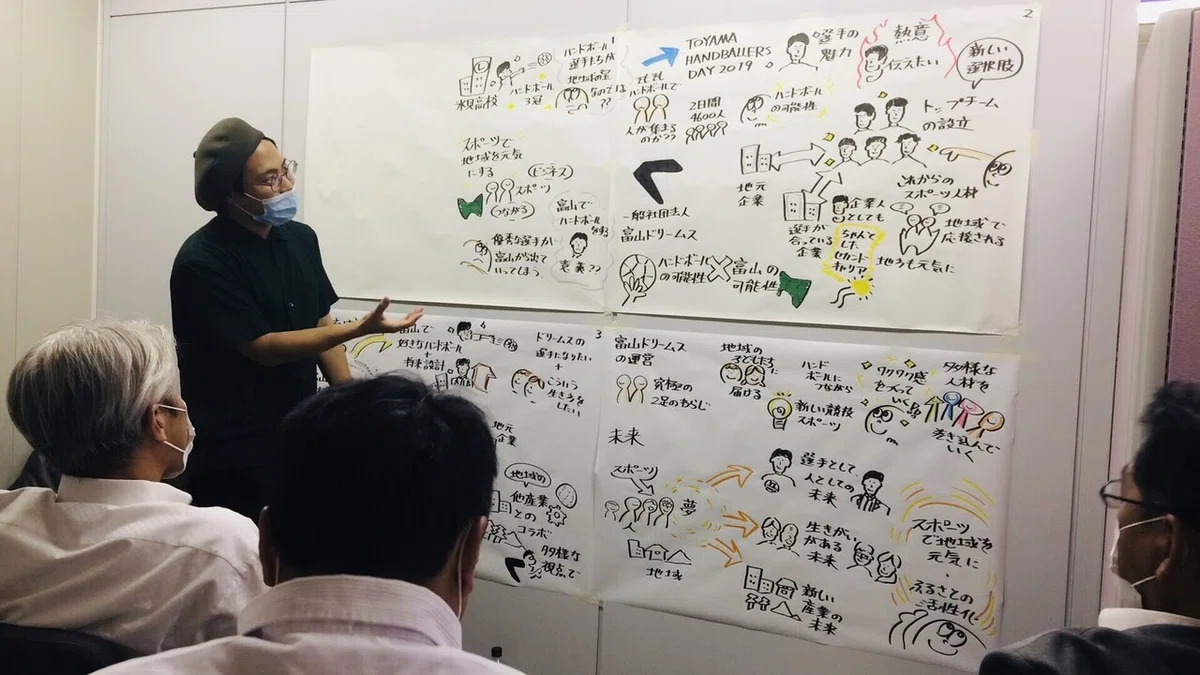 1
氷見高校
ハンドボール
3冠
ハンドボール
選手たちが
地域の星
なのでは
??
スポーツで
地域を元気
にする
ビジネス
スポーツ
つながる
優秀な選手が
富山から出て
いってしまう
富山で
ハンドボール
をする
意義??
2
TOYAMA
HANDBALLERS
DAY 2019
そもそも
ハンドボールで
人が集まる
のか??
2日間
4600人
選手の
魅力
熱意
伝えたい
新しい
選択肢
ハンドボール
の可能性
トップチーム
の設立
地元
企業
これからの
スポーツ人材
一般社団法人
富山ドリームス
選手が
合っている
企業
企業人
としても
ちゃんと
した
セカンド
キャリア
地域で
応援される
地方も元気に
ハンドボール
の可能性
富山の
可能性
3
富山で
好きなハンドボール
+
将来設計
ドリームスの
選手になりたい
+
こういう
生き方を
したい
地元
企業
地域の
他産業
との
コラボ
多様な
視点で
富山ドリームス
の運営
究極の
2足のわらじ
地域の
子どもたちに
届ける
ハンド
ボールに
つながら
新しい競技
スポーツ
ワクワク感
をもって
いく
多様な
人材を
巻き込んで
いく
未来
スポーツ
夢
地域
選手として、
人としての
未来
生きがい
がある
未来
新しい
産業の
未来
スポーツ
で地域を
元気に
ふるさとの
活性化